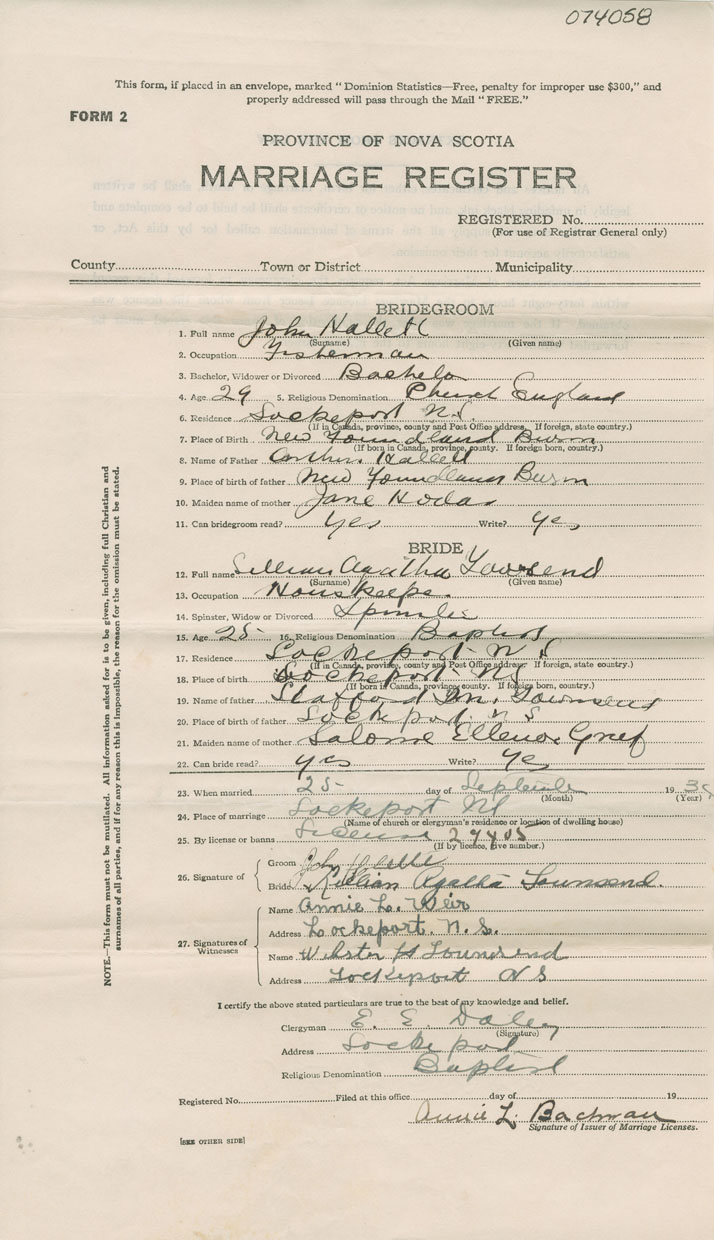 074058
This form, if placed in an envelope, marked "Dominion Statistics—Free, penalty for improper use $300," and
properly addressed will pass through the Mail "FREE."
FORM 2
PROVINCE OF NOVA SCOTIA
MARRIAGE REGISTER
REGISTERED No.
(For use of Registrar General only)
County Town or District Municipality
BRIDEGROOM
1. Full name John Hallett
(Surname) (Given name)
2. Occupation Fisherman
3. Bachelor, Widower or Divorced Bachelor
4. Age 29 5. Religious Denomination Church England
6. Residence Lockeport N.S.
(If in Canada, province, county and Post Office address. If foreign, state country.)
7. Place of Birth New Foundland Burin
(If born in Canada, province, county. If foreign born, country.)
8. Name of Father Arthur Hallett
9. Place of birth of father New Foundland Burin
10. Maiden name of mother Jane
11. Can bridegroom read? Yes Write? Yes
BRIDE
12. Full name Lillian Agatha Townsend
(Surname) (Given name)
13. Occupation Houskeeper
14. Spinster, Widow or Divorced Spinster
15. Age 25 16. Religious Denomination Baptist
17. Residence Lockeport N S
(If in Canada, province, county and Post Office address. If foreign, state country.)
18. Place of birth Lockeport N S
(If born in Canada, province, county. If foreign born, country.)
19. Name of father Stafford Townsend
20. Place of birth of father Lockeport N S
21. Maiden name of mother Salome Ellenor Greef
22. Can bride read? Yes Write? Yes
23. When married 25 day of September 19 3
(Month) (Year)
24. Place of marriage Lockeport NS
(Name of church or clergyman's residence or location of dwelling house)
25. By license or banns License 29405
(If by licence, give number.)
26. Signature of
Groom John
Bride Lillian Agatha Townsend.
27. Signatures of Witnesses
Name Annie L. Weir
Address Lockeport. N.S.
Name Webster H Townsend
Address Lockeport N S
I certify the above stated particulars are true to the best of my knowledge and belief.
Clergyman E. E. Daley
(Signature)
Address Lockeport
Religious Denomination Baptist
Registered No. Filed at this office day of 19
Annie L. Bachman
Signature of Issuer of Marriage Licenses.
[SEE OTHER SIDE]
NOTE.—This form must not be mutilated. All information asked for is to be given, including full Christian and
surnames of all parties, and if for any reason this is impossible, the reason for the omission must be stated.